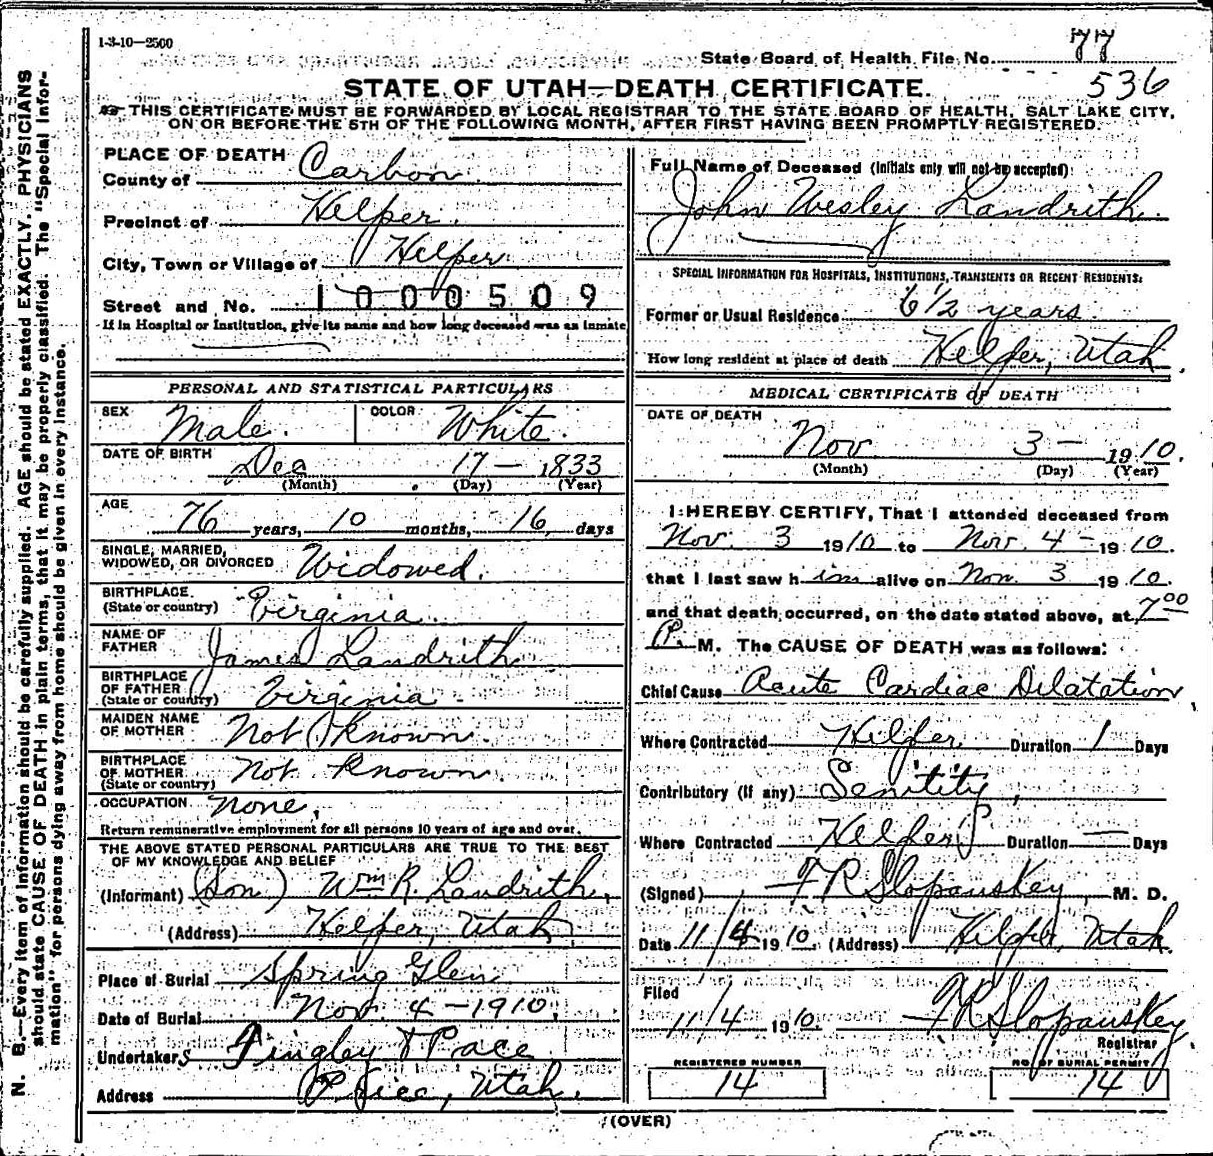 1-3-10—2500
State Board of Health File No. 77
536
STATE OF UTAH—DEATH CERTIFICATE.
THIS CERTIFICATE MUST BE FORWARDED BY LOCAL REGISTRAR TO THE STATE BOARD OF HEALTH, SALT LAKE CITY,
ON OR BEFORE THE 5TH OF THE FOLLOWING MONTH, AFTER FIRST HAVING BEEN PROMPTLY REGISTERED.
PLACE OF DEATH
County of Carbon
Precinct of Helper.
City, Town or Village of Helper
Street and No. 1000509
If in Hospital or Institution, give its name and how long deceased was an inmate
PERSONAL AND STATISTICAL PARTICULARS
SEX Male. COLOR White.
DATE OF BIRTH Dec 17 — 1833
(Month) (Day) (Year)
AGE
76 years, 10 months, 16 days
SINGLE, MARRIED,
WIDOWED, OR DIVORCED Widowed.
BIRTHPLACE
(State or country) Virginia
NAME OF
FATHER James Landrith
BIRTHPLACE
OF FATHER
(State or country) Virginia
MAIDEN NAME
OF MOTHER Not Known.
BIRTHPLACE
OF MOTHER
(State or country) Not Known
OCCUPATION None.
Return remunerative employment for all persons 10 years of age and over.
THE ABOVE STATED PERSONAL PARTICULARS ARE TRUE TO THE BEST
OF MY KNOWLEDGE AND BELIEF
(Informant) (Son) Wm R. Landrith.
(Address) Helper, Utah
Place of Burial Spring Glen
Date of Burial Nov. 4 — 1910.
Undertakers Tingley & Pace
Address Price, Utah.
Full Name of Deceased (Initials only will not be accepted)
John Wesley Landrith.
SPECIAL INFORMATION FOR HOSPITALS, INSTITUTIONS, TRANSIENTS OR RECENT RESIDENTS:
Former or Usual Residence 6 1/2 years.
How long resident at place of death Helper, Utah.
MEDICAL CERTIFICATE OF DEATH
DATE OF DEATH
Nov 3 — 1910.
(Month) (Day) (Year)
I HEREBY CERTIFY, That I attended deceased from
Nov. 3 1910 to Nov. 4 — 1910.
that I last saw him alive on Nov. 3 1910.
and that death occurred, on the date stated above, at 7 00
P. M. The CAUSE OF DEATH was as follows:
Chief Cause Acute Cardiac Dilatation
Where Contracted Helper Duration 1 Days
Contributory (if any) Senility,
Where Contracted Helper Duration — Days
(Signed) F R Slopanskey, M. D.
Date 11/4 1910. (Address) Helper, Utah
Filed
11/4 1910. F R Slopanskey
Registrar
REGISTERED NUMBER
14
NO. OF BURIAL PERMIT
14
(OVER)
N. B.—Every item of information should be carefully supplied. AGE should be stated EXACTLY. PHYSICIANS
should state CAUSE OF DEATH in plain terms, that it may be properly classified. The "Special Infor-
mation" for persons dying away from home should be given in every instance.